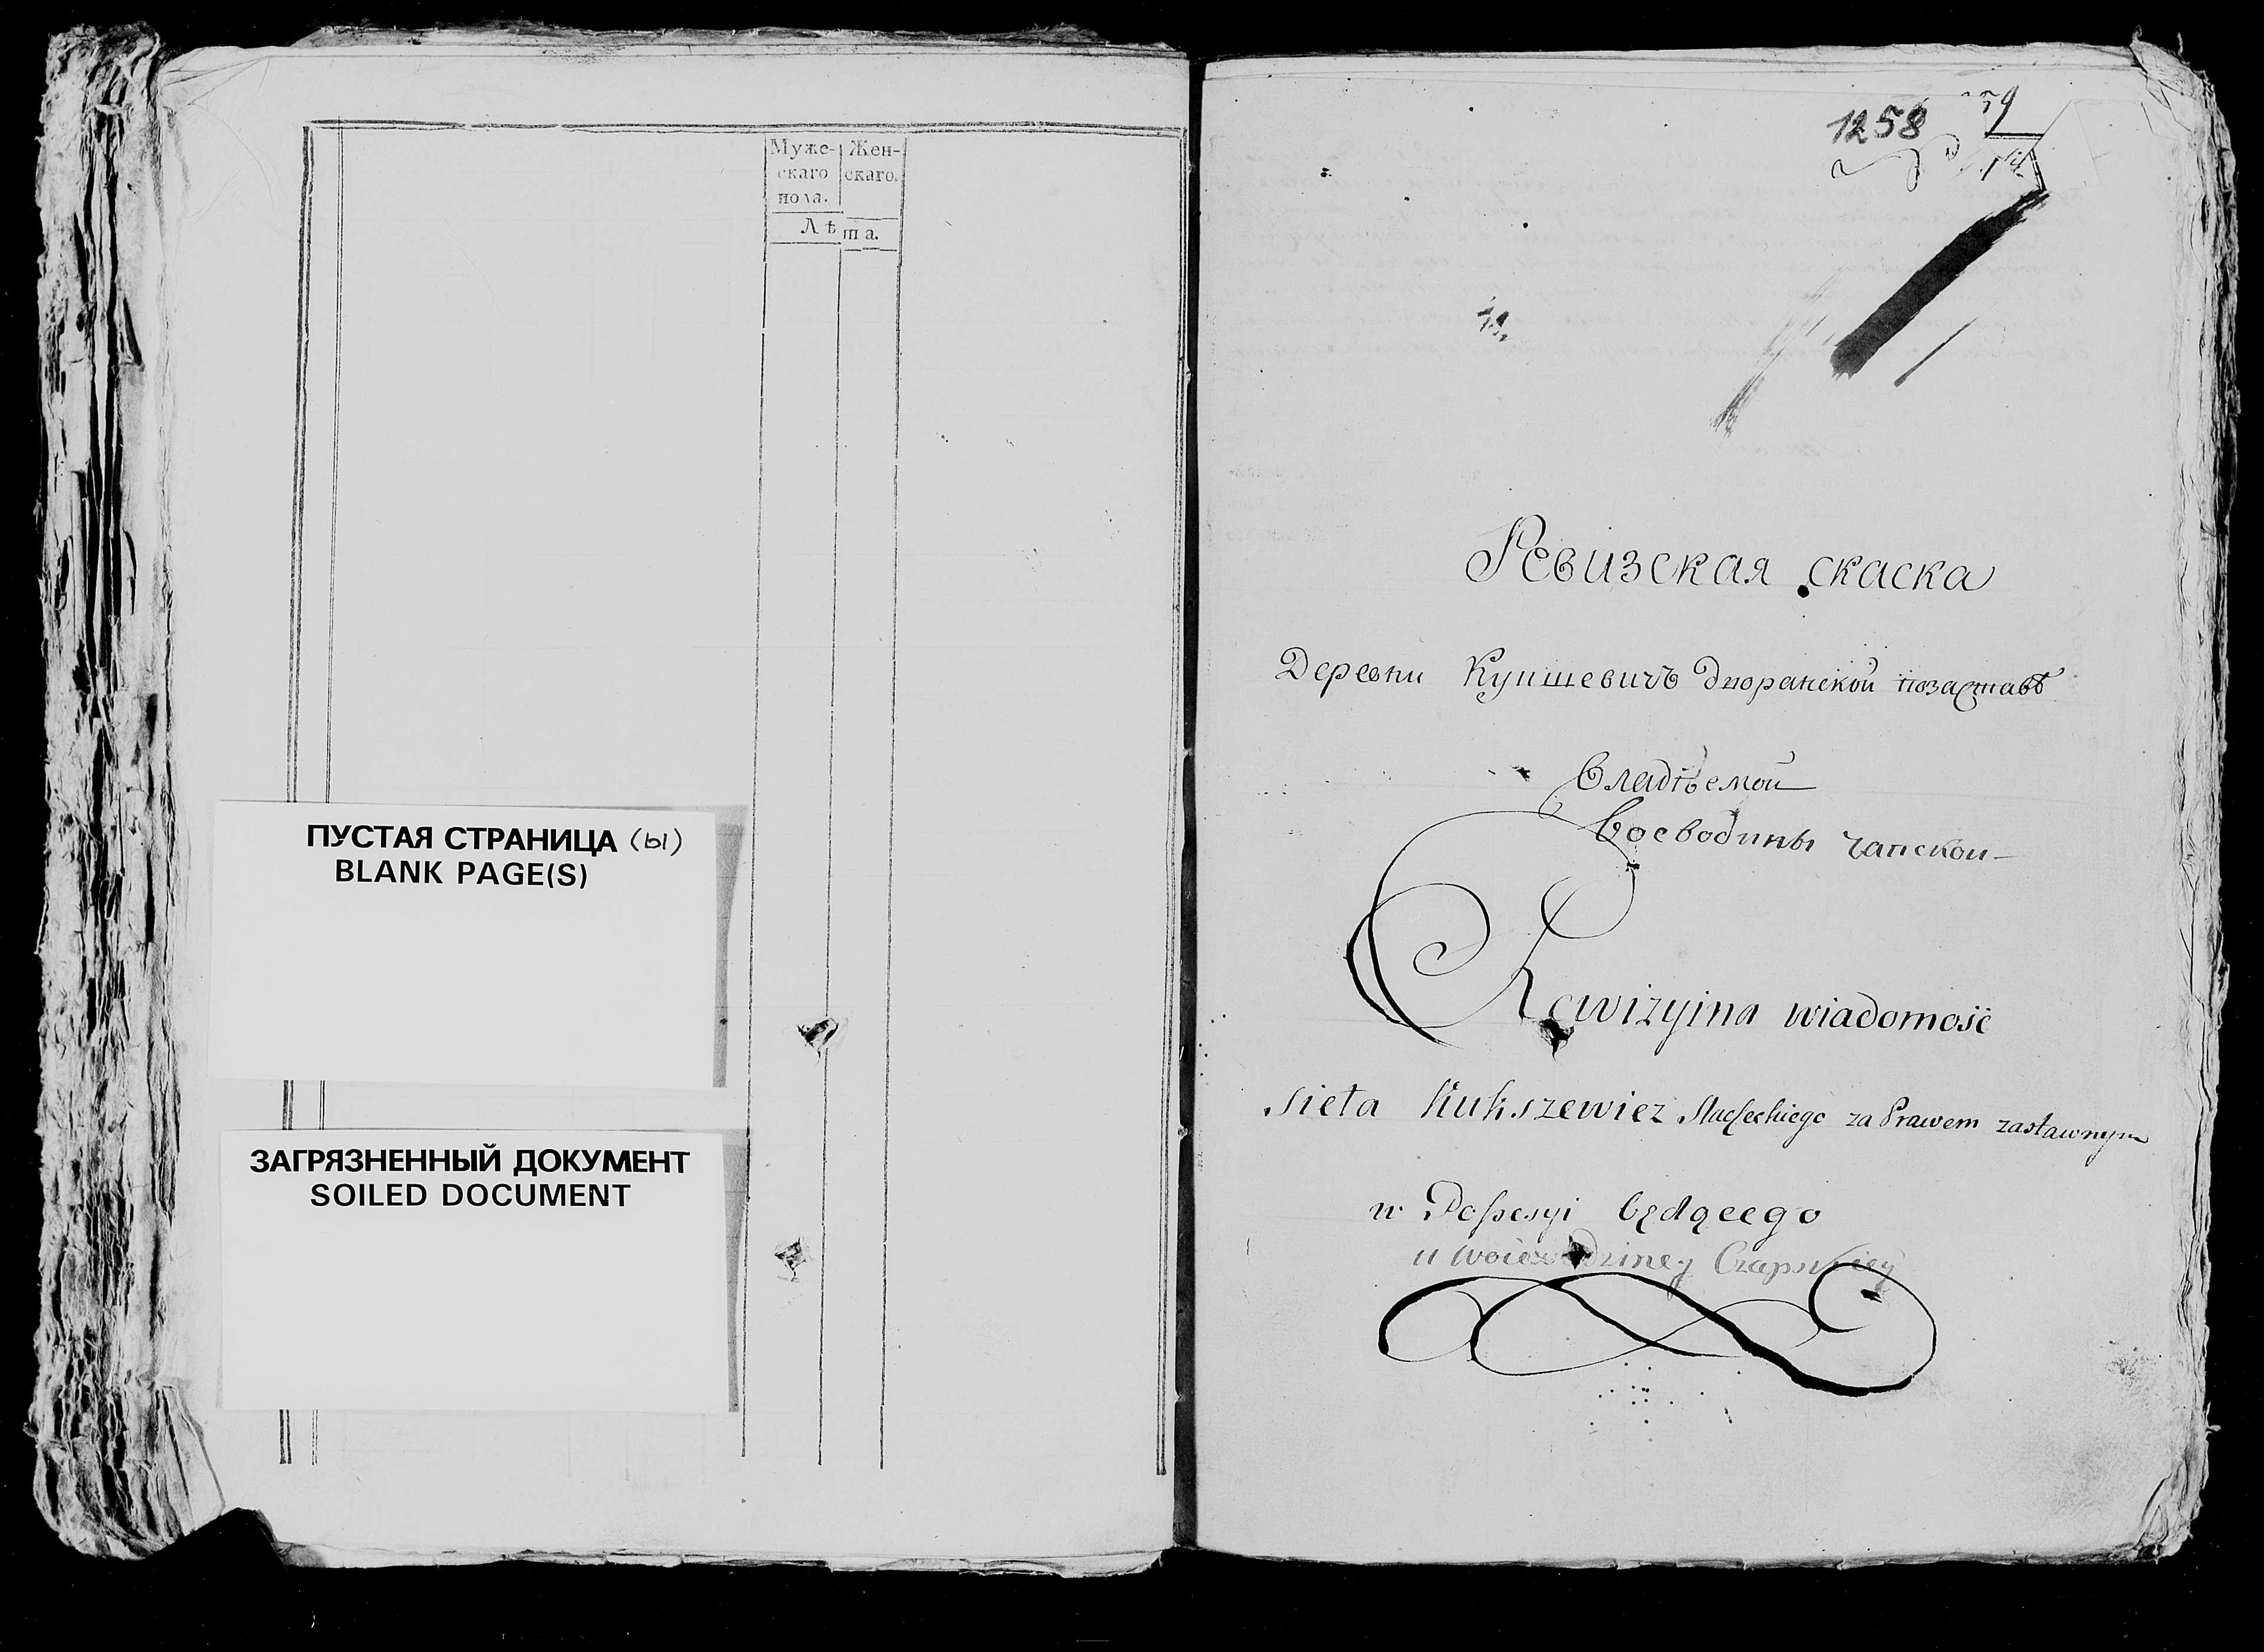 Муже-
скаго
пола.
Жен-
скаго.
Лѣта.
ПУСТАЯ СТРАНИЦА (ы)
BLANK PAGE(S)
ЗАГРЯЗНЕННЫЙ ДОКУМЕНТ
SOILED DOCUMENT
1258
Ревизская скаска
Деревни Кукшевичъ позаставѣ
владѣемой
воеводины чапской
Rewizyina wiadomość
sieła Kukszewicz za Prawem zastawnym
w Possesyi będącego
u woiewodziney Czapskiey